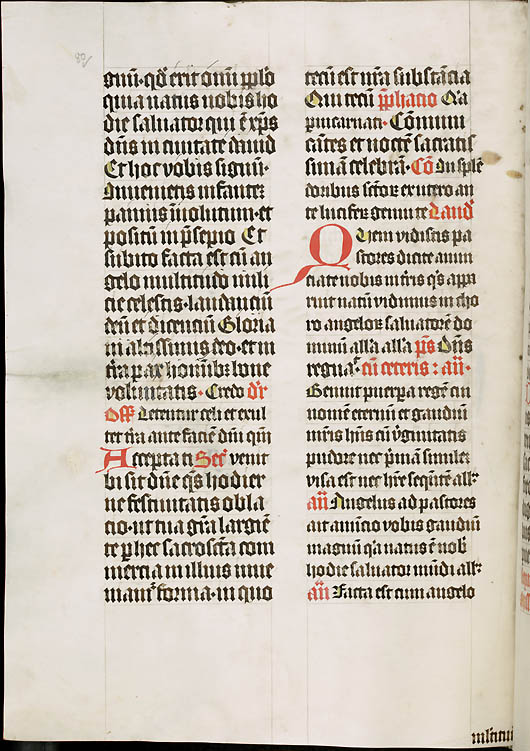 gnū · qd̄ erit om̄i pp̄lo
quia natus nobis ho
die saluator qui ē xp̄s
dn̄s in ciuitate dauid
Et hoc vobis signū ·
Inuenietis infantem
pannis īuolutum · et
positū in p̄sepio Et
subito facta est cū an
gelo multitudo mili
cie celestis · laudanciū
deū et dicenciū Gloria
in altissimis deo · et in
t̄ra pax hoīnibꝫ bone
voluntatis · Credo dr̄
Off̄ Letentur celi et exul
tet t̄ra ante faciē dn̄i qm̄
Accepta ti Secͬ venit
bi sit dn̄e qs̄ hodier
ne festiuitatis obla
cio · ut tua gr̄a largiē
te per hec sacrosc̄ta com
mercia in illius inue
niamͬ forma · in quo
tecū est nr̄a substācia
Qui tecū p̄phacio Qͥa
p incarnati · Cōmuni
cātes et noctē sacratis
simā celebrā · Cō In splē
doribus sc̄tor ex utero an
te luciferū genui te Laudͫ
Quem vidistis pa
stores dicite annū
ciate nobis in t̄ris qs̄ appa
ruit natū vidimus in cho
ro angeloꝝ saluatorē do
minū alla alla ps̄ Dn̄s
regnaͭ · cū ceteris : añ ·
Genuit puerpera regē cui
nomē eternū et gaudiū
mr̄is hn̄s cū v̓ginitatis
pudore nec p̓mam similē
visa est nec hr̄e sequētē allͣ
añ Angelus ad pastores
ait annūcio vobis gaudiū
magnū qͥa natus ē nobͫ
hodie saluator mūdi allͣ
añ Facta est cum angelo